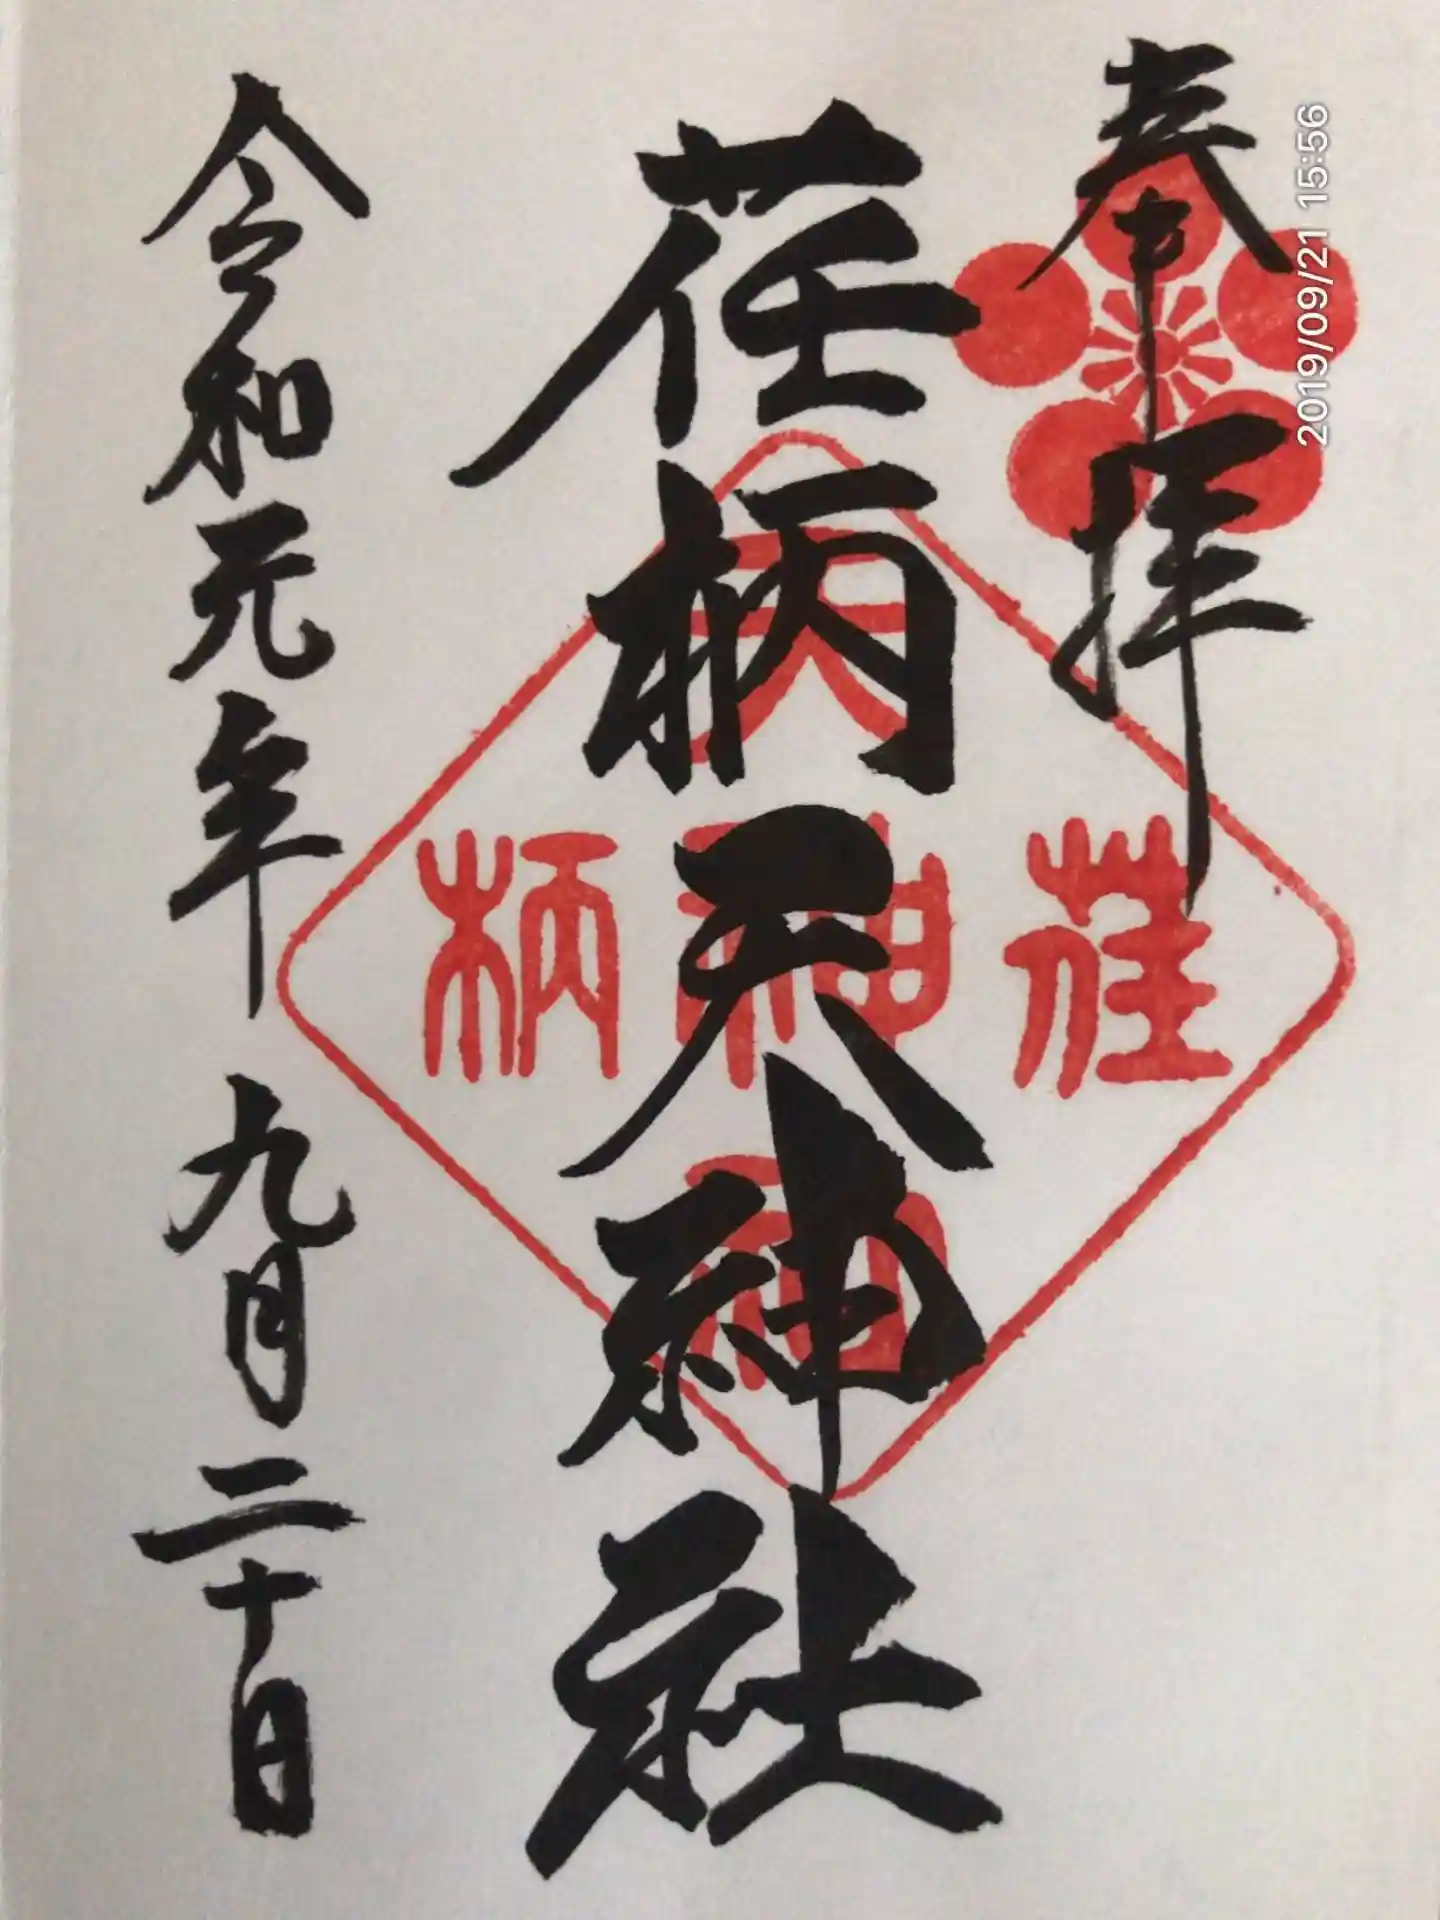 奉拝
荏柄天神社
令和元年 九月二十日
天
荏神柄
2019/09/21 15:56